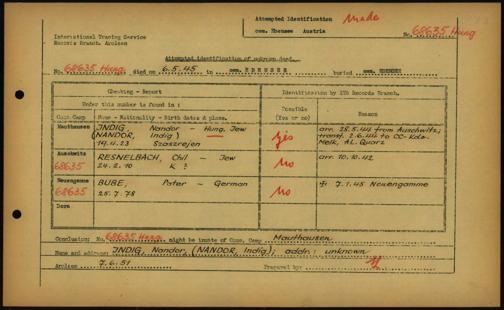 Attempted Identification Made
International Tracing Service
Records Branch. Arolsen
cem. Ebensee Austria
No. 68635 Hung
Attempted identification of unknown dead.
No. 68635 Hung. died on 6.5.45 in cem. EBENSEE buried cem. EBENSEE
Checking - Report
Identification by ITS Records Branch.
Under this number to found in :
Possible
(Yes or no)
Reason
Conc.Camp
Name - Nationality - Birth dates & place.
Mauthausen
INDIG Nandor - Hung. Jew
(NANDOR, Indig)
19.4.23 Szaszrejen
yes
arr. 28.5.44 from Auschwitz;
transf. 2.6.44 to CC-Kdo.
Melk, AL. Quarz
Auschwitz
68635
RESNELBACH, Chil - Jew
24.2.10 K ?
no
arr. 10.10.42
Neuengamme
68635
BUBE, Peter - German
25.7.78
no
† 7.1.45 Neuengamme
Dora
Conclusion: No. 68635 Hung might be inmate of Conc. Camp Mauthausen
Name and address: INDIG, Nandor (NANDOR, Indig); addr.: unknown
Arolsen 7.6.51 Prepared by: